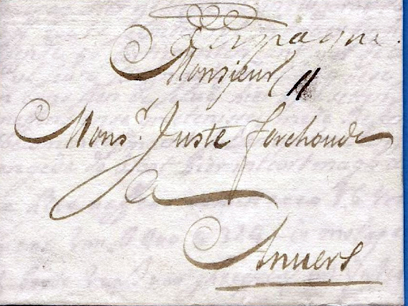 Espagne.
Monsieur
Mons.r Juste forchoudt
a
Anvers